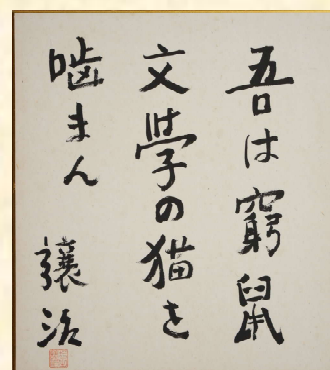 吾は窮鼠
文學の猫を
噛まん
讓治